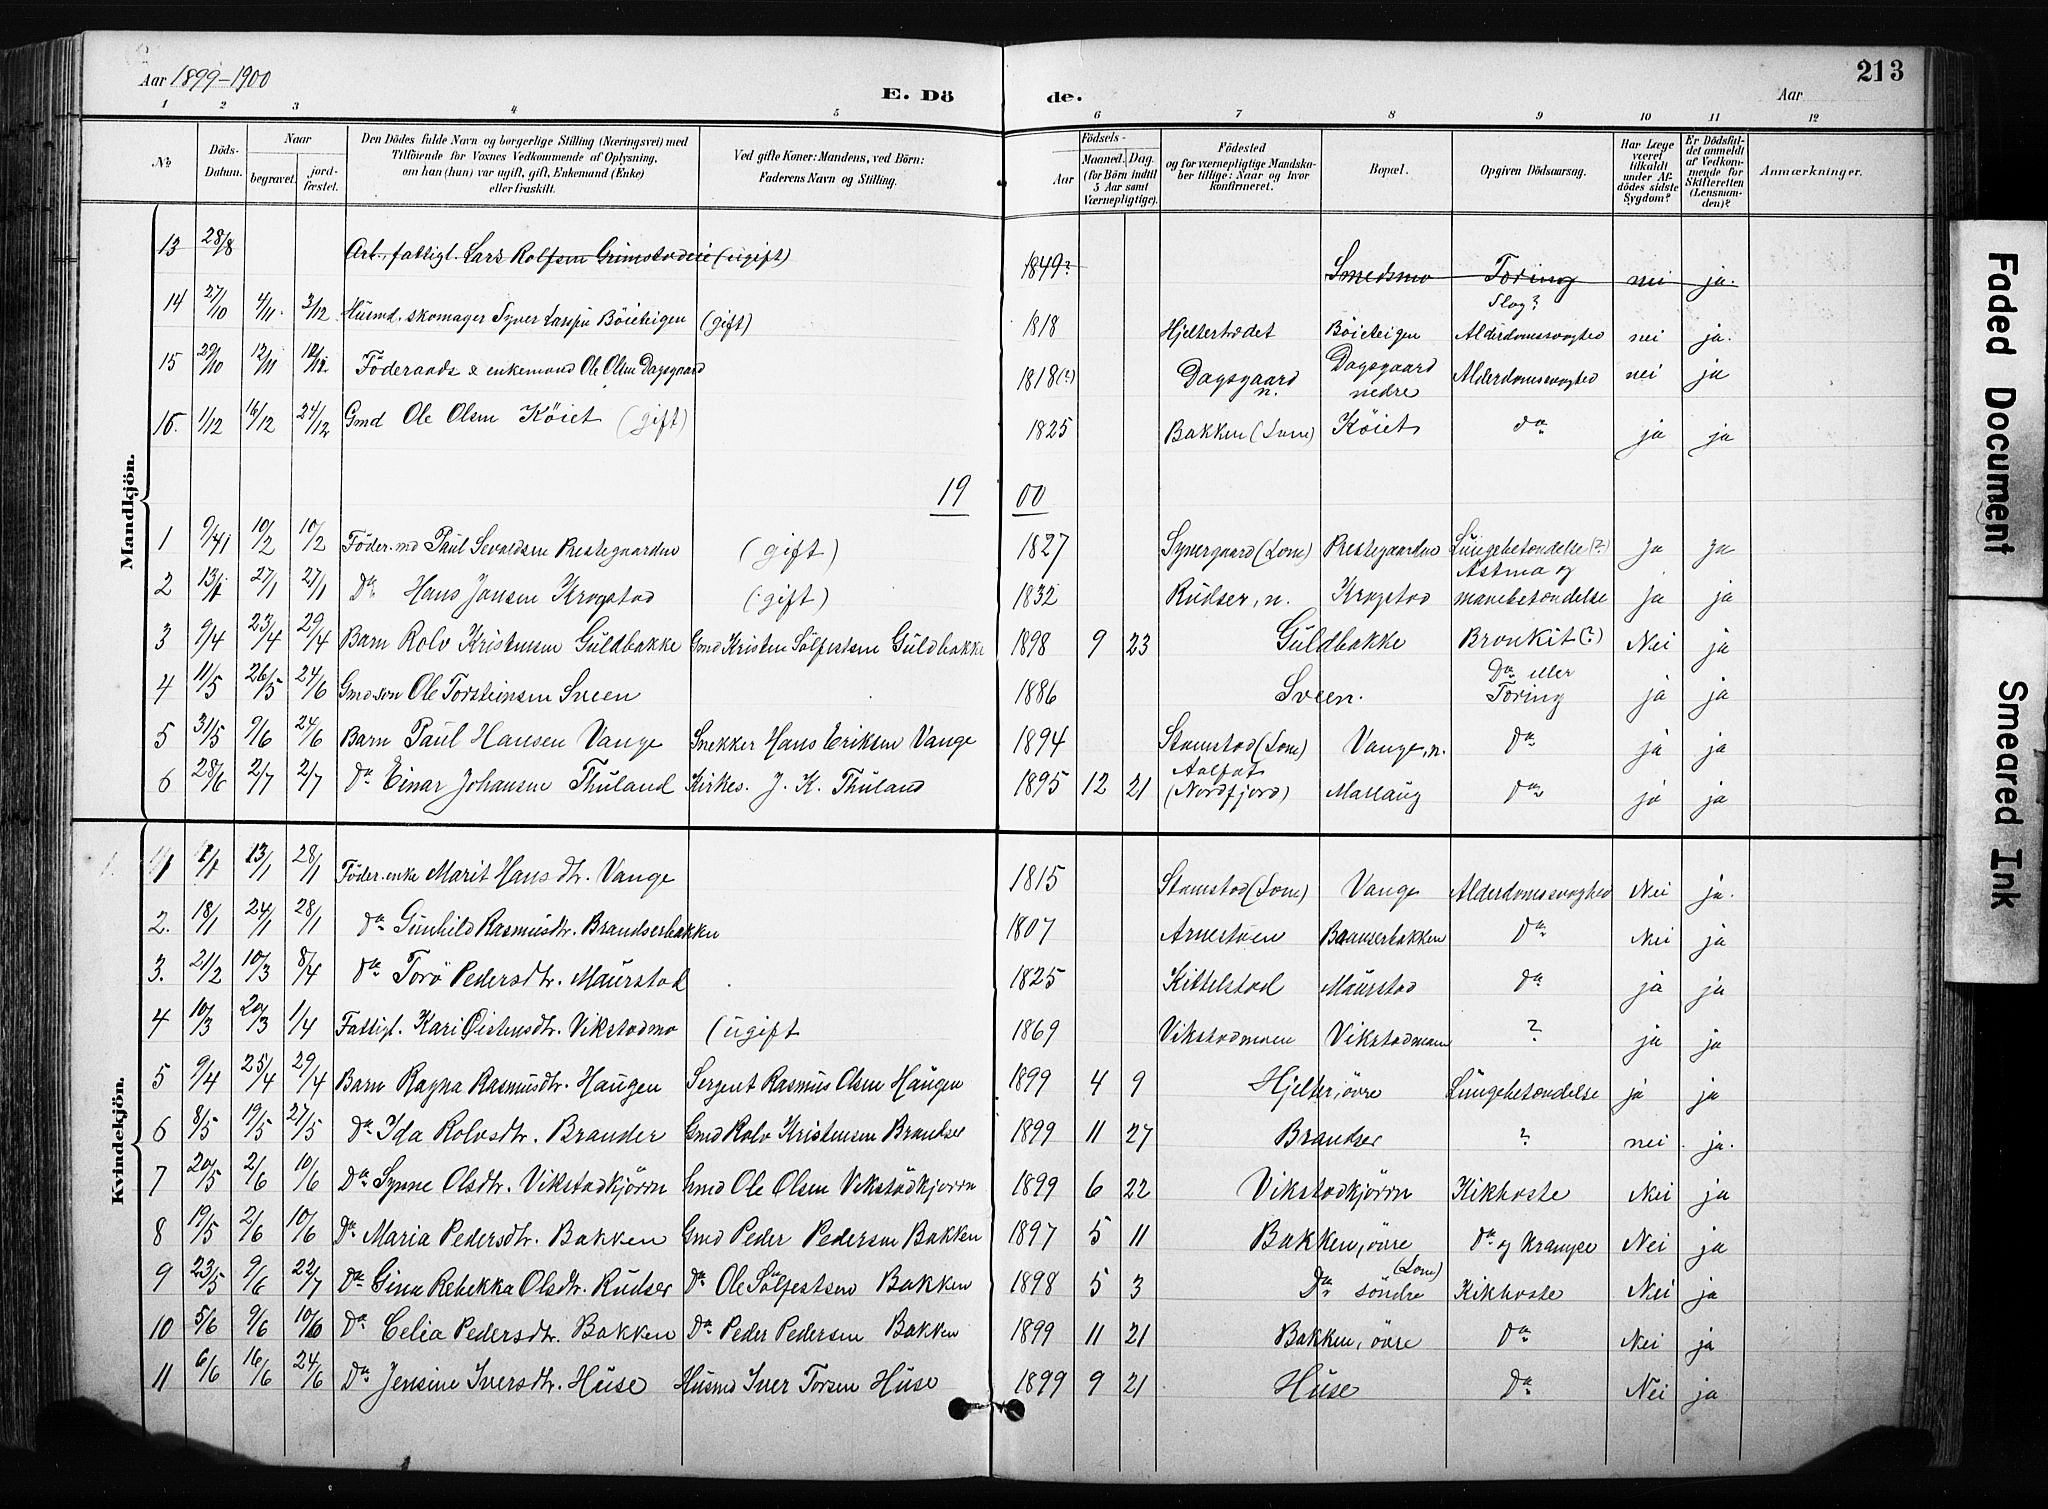 Aar 1899-1900
E. Dö de.
Aar
213
1 2 3 4 5 6 7 8 9 10 11 12
No
Döds-Datum.
Naar
begravet.
jord-fæstet.
Den Dödes fulde Navn og borgerlige Stilling (Næringsvei) med
Tilföiende for Voxnes Vedkommende af Oplysning,
om han (hun) var ugift, gift, Enkemand (Enke)
eller fraskilt.
Ved gifte Koner: Mandens, ved Börn:
Faderens Navn og Stilling.
Födsels-
Aar
Maaned. Dag.
(for Börn indtil
5 Aar samt
Værnepligtige).
Födested
og for værnepligtige Mandska-
ber tillige: Naar og hvor
konfirmeret.
Bopæl.
Opgiven Dödsaarsag.
Har Læge
været
tilkaldt
under Af-
dödes sidste
Sygdom?
Er Dödsfal-
det anmeldt
af Vedkom-
mende for
Skifteretten
(Lensman-
den)?
Anmærkninger.
Mandkjön.
13 28/8 Arb., fattigl. Lars Rolfsen Grimstadeie (ugift) 1849? Smedsmo Tæring nei ja.
14 27/10 4/11. 3/12 Husmd. skomager Syver Larssen Böieteigen (gift) 1818 Hjeltestædet Böieteigen Slag? Alderdomssvaghed nei ja.
15 29/10 12/11 12/12. Föderaads & enkemand Ole Olsen Dagsgaard 1818(?) Dagsgaard n. Dagsgaard nedre Alderdomssvaghed nei ja
16. 1/12 16/12 24/12 Gmd Ole Olsen Köiet (gift) 1825 Bakken (Lom) Köiet do ja ja
19 00
1 10/2 10/2 Föder.md Paul Sevaldsen Prestegaarden (gift) 1827 Syvergaard (Lom) Prestegaarden Lungebetændelse (?) ja ja
2 13/1 27/1 27/1 Do Hans Jansen Krogstad (gift) 1832 Rudser, n. Krogstad Astma og mavebetændelse ja ja
3 9/4 23/4 29/4 Barn Rolv Kristensen Guldbakke Gmd Kristen Sölfestsen Guldbakke 1898 9 23 Guldbakke Bronkit (?) Nei ja
4 11/5 26/5 24/6 Gmdsön Ole Torsteinsen Sveen 1886 Sveen. Do eller Tæring ja ja
5 31/5 9/6 24/6 Barn Paul Hansen Vange Snekker Hans Eriksen Vange 1894 Stamstad (Lom) Vange, n. Do ja ja
6 28/6 2/7 2/7 Do Einar Johansen Thuland Kirkes. J. K. Thuland 1895 12 21 Aalfot (Nordfjord) Marlaug Do ja ja
Kvindekjön.
1 13/1 28/1 Föder.enke Marit Hansdtr. Vange 1815 Stamstad (Lom) Vange Alderdomssvaghed Nei ja.
2. 18/1 24/1 28/1 Do Gunhild Rasmusdtr. Brandserbakken 1807 Arnestuen Brandserbakken Do Nei ja
3. 21/2 10/3 8/4 Do Torö Pedersdtr. Maurstad 1825 Kittelstad Maurstad Do ja ja
4 10/3 20/3 1/4 Fattigl. Kari Öistensdtr. Vikstadmo (ugift 1869 Vikstadmoen Vikstadmoen ? ja ja
5 9/4 25/4 29/4 Barn Ragna Rasmusdtr. Haugen Sergent Rasmus Olsen Haugen 1899 4 9 Hjelter, övre Lungebetændelse ja ja
6 8/5 19/5 27/5 Do Ida Rolvsdtr. Brandser Gmd Rolv Kristensen Brandser 1899 11 27 Brandser ? nei. ja.
7 20/5 2/6 10/6 Do Synne Olsdtr. Vikstadkjörrn Gmd Ole Olsen Vikstadkjörrn 1899 6 22 Vikstadkjörrn Kikhoste Nei ja
8 19/5 2/6 10/6 Do Maria Pedersdtr. Bakken Gmd Peder Pedersen Bakken 1897 5 11 Bakken, övre Do og Krampe Nei ja
9 23/5 9/6 22/7 Do Gina Rebekka Olsdtr. Rudser Do Ole Sölfestsen Bakken 1898 5 3 Do söndre (Lom) Kikhoste Nei ja
10 5/6 9/6 10/6 Do Celia Pedersdtr. Bakken Do Peder Pedersen Bakken 1899 11 21 Bakken, övre Do Nei ja
11 6/6 16/6 24/6 Do Jensine Iversdtr. Huse Husmd Iver Torsen Huse 1899 9 21 Huse Do Nei ja
Faded Document
Smeared Ink